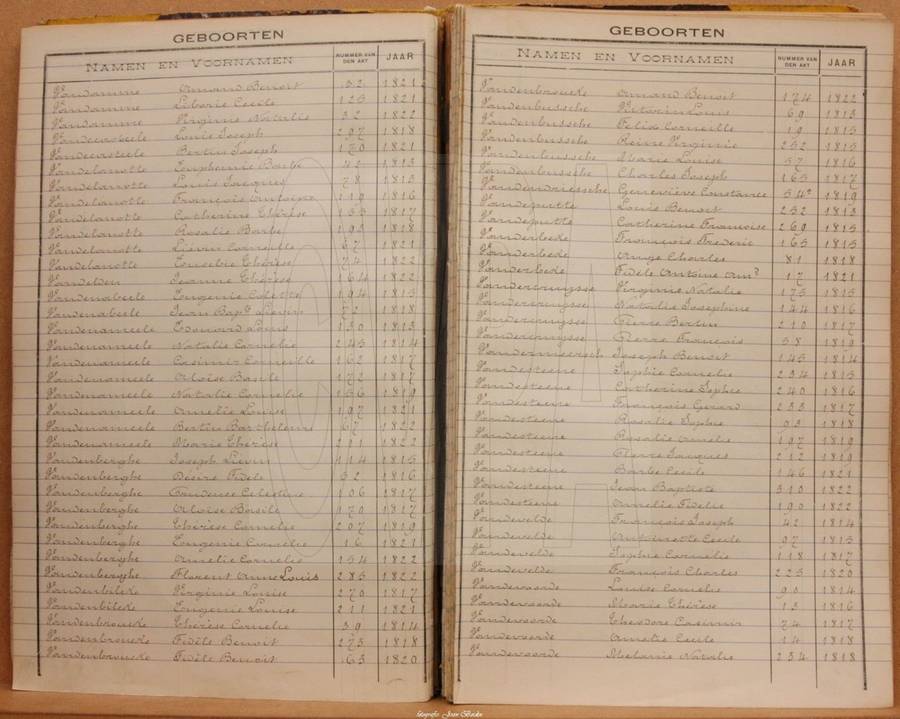 GEBOORTEN
NAMEN EN VOORNAMEN NUMMER VAN DEN AKT JAAR
Vandamme Armand Benoit 32 1821
Vandamme Liborie Cecile 125 1821
Vandamme Virginie Natalie 32 1822
Louis Joseph 297 1818
Bertin Joseph 170 1821
Vandelanotte Euphemie Barbe 42 1813
Vandelanotte Louis Jacques 78 1815
Vandelanotte François Antoine 119 1816
Vandelanotte Catherine Thérèse 1817
Vandelanotte Rosalie Barbe 1818
Vandelanotte Lievin Corneille 67 1821
Vandelanotte Eusebie Thérèse 74 1822
Jeanne Thérèse 164 1822
Vandenabeele Eugenie Colette 194 1815
Vandenabeele Jean Bapte Lievin 72 1818
Vandenameele Edouard Louis 130 1813
Vandenameele Natalie Cornelie 245 1814
Vandenameele Casimir Corneille 162 1817
Vandenameele Aloïse Basile 172 1817
Vandenameele Natalie Cornelie 156 1819
Vandenameele Amelie Louise 197 1821
Vandenameele Bertin Barthelemi 67 1822
Vandenameele Marie Thérèse 211 1822
Vandenberghe Joseph Lievin 114 1815
Vandenberghe Désiré Fidele 32 1816
Vandenberghe Prudence Celestine 106 1817
Vandenberghe Aloïse Basile 170 1817
Vandenberghe Thérèse Cornelie 207 1819
Vandenberghe Eugenie Cornelie 16 1821
Vandenberghe Amelie Cornelie 154 1822
Vandenberghe Florent Anne Louis 285 1822
Vandenbilcke Virginie Louise 270 1817
Vandenbilcke Eugenie Louise 211 1821
Vandenbroucke Thérèse Cornelie 39 1814
Vandenbroucke Fidèle Benoit 275 1818
Vandenbroucke Fidèle Benoit 163 1820
GEBOORTEN
NAMEN EN VOORNAMEN NUMMER VAN DEN AKT JAAR
Vandenbroucke Armand Benoit 174 1822
Vandenbussche Victorin Louis 69 1813
Vandenbussche Felix Corneille 19 1815
Vandenbussche Reine Virginie 252 1815
Vandenbussche Marie Louise 57 1816
Vandenbussche Charles Joseph 165 1817
Vandendriessche Geneviève Constance 54 1819
Vandeputte Louis Benoit 252 1813
Vandeputte Catherine Françoise 269 1815
Vanderbeke François Frederic 165 1815
Vanderbeke Ange Charles 81 1818
Vanderbeke Fidèle Antoine Am 17 1821
Vandercruysse Virginie Natalie 175 1815
Vandercruysse Natalie Josephine 144 1816
Vandercruysse Pierre Bertin 210 1817
Vandercruysse Pierre François 58 1819
Vandermeersch Joseph Benoit 145 1814
Vandesteene Sophie Cornelie 254 1815
Vandesteene Catherine Sophie 240 1816
Vandesteene François Gerard 233 1817
Vandesteene Rosalie Sophie 93 1818
Vandesteene Rosalie Amelie 197 1819
Vandesteene Pierre Jacques 212 1819
Vandesteene Barbe Cecile 146 1821
Vandesteene Jean Baptiste 310 1822
Vandesteene Amelie Fidelie 190 1822
Vandevelde François Joseph 42 1814
Vandevelde Antoinette Cecile 97 1815
Vandevelde Sophie Cornelie 118 1817
Vandevelde François Charles 225 1820
Vandevoorde Louise Cornelie 90 1814
Vandevoorde Marie Thérèse 13 1816
Vandevoorde Theodore Casimir 74 1817
Vandevoorde Amelie Cecile 14 1818
Vandevoorde Melanie Natalie 254 1818